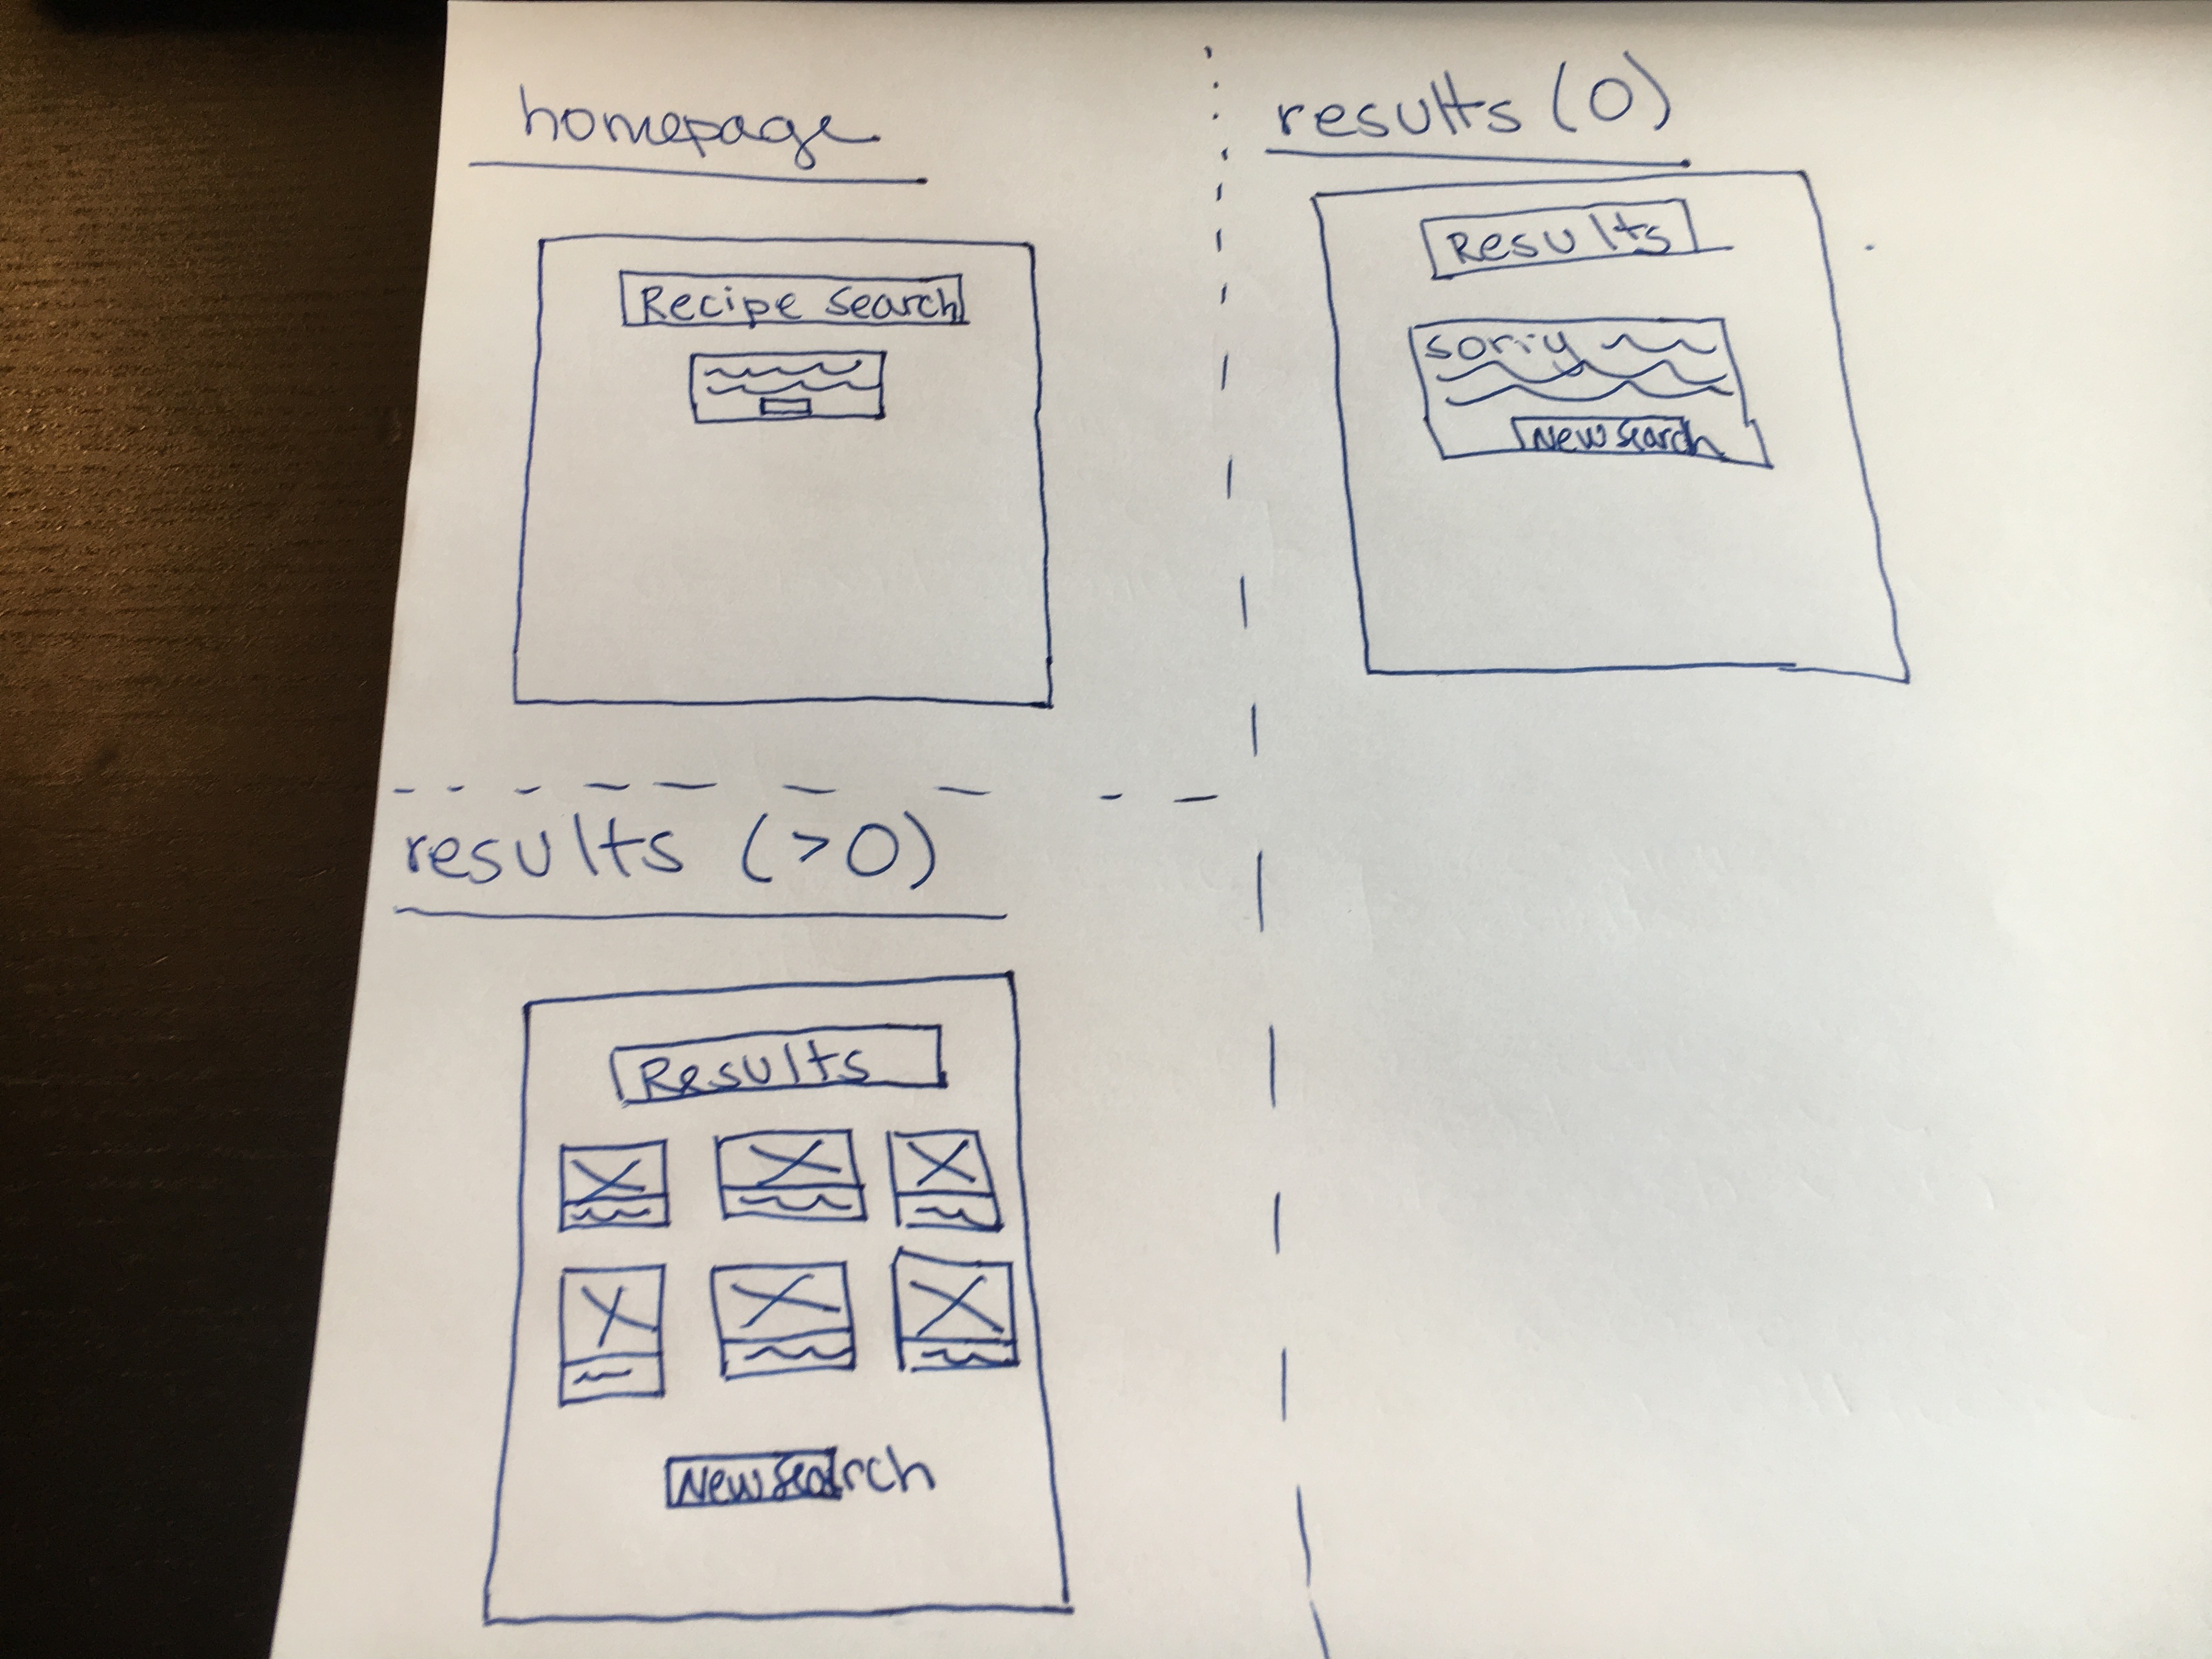 homepage
Recipe Search
results (0)
Results
sorry
New Search
results (>0)
Results
New Search